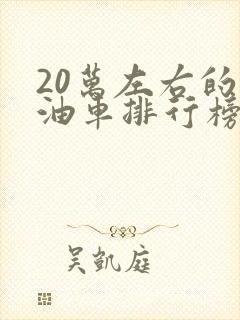 20萬左右的
油車排行榜
吳凱庭